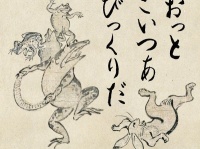 おっと
こいつぁ
びっくりだ